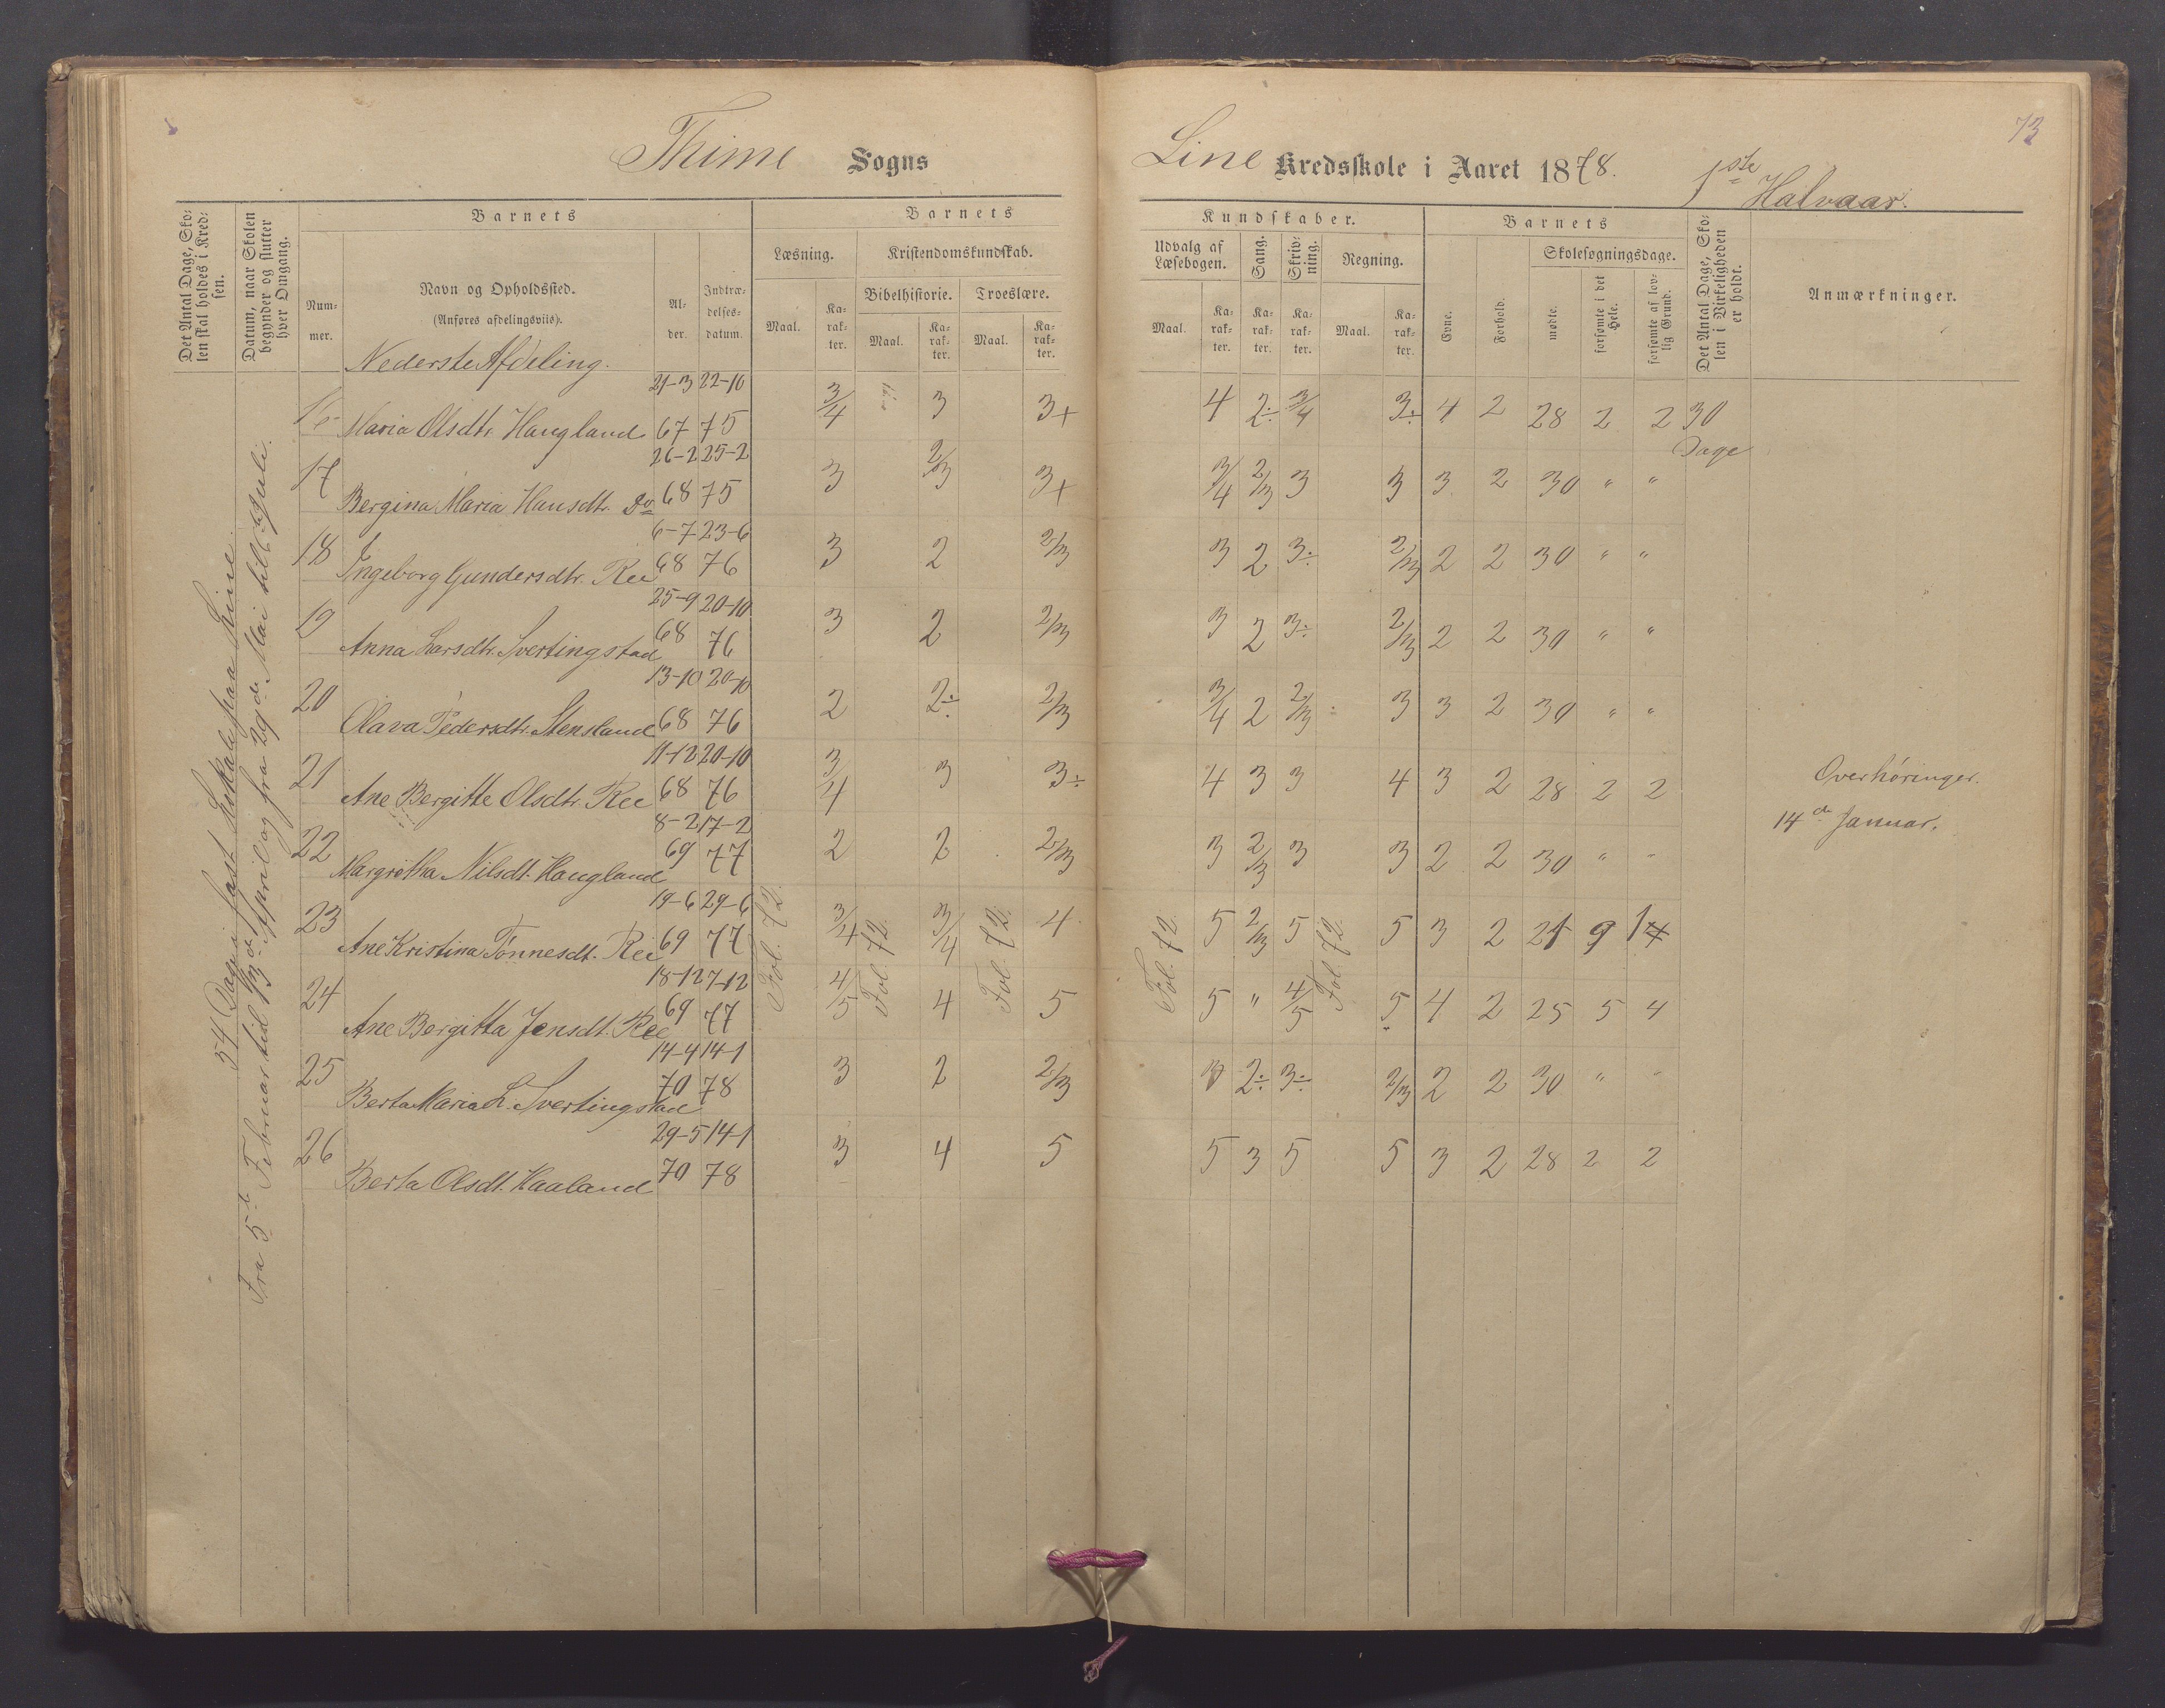 73
Thime Sogns
Line Kredsskole i Aaret 1878. 1ste Halvaar.
Det Antal Dage, Sko-
len skal holdes i Kred-
sen.
Datum, naar Skolen
begynder og slutter
hver Omgang.
Barnets
Num-
mer.
Navn og Opholdssted.
(Anføres afdelingsviis).
Al-
der.
Indtræ-
delses-
datum.
Barnets
Læsning.
Maal.
Ka-
rak-
ter.
Kristendomskundskab.
Bibelhistorie.
Maal.
Ka-
rak-
ter.
Troeslære.
Maal.
Ka-
rak-
ter.
Kundskaber.
Udvalg af
Læsebogen.
Maal.
Ka-
rak-
ter.
Sang.
Ka-
rak-
ter.
Skriv-
ning.
Ka-
rak-
ter.
Regning.
Maal.
Ka-
rak-
ter.
Barnets
Evne.
Forhold.
Skolesøgningsdage.
mødte.
forsømte i det
Hele.
forsømte af lov-
lig Grund.
Det Antal Dage, Sko-
len i Virkeligheden
er holdt.
Anmærkninger.
54 Dage i fast Lokale paa Line.
Fra 5te Februar til 13de April og fra 29de Mai til 6te Juli.
Nederste Afdeling.
21-3 22-10
16 Maria Olsdtr. Haugland 67 75 3/4 3 3+ 4 2÷ 3/4 3÷ 4 2 28 2 2 30
Dage
26-2 25-2
17 Bergina Maria Hansdtr. Do 68 75 3 2/3 3+ 3/4 2/3 3 3 3 2 30 " "
6-7 23-6
18 Ingeborg Gundersdtr. Ree 68 76 3 2 2/3 3 2 3÷ 2/3 2 2 30 " "
25-9 20-10
19 Anna Larsdtr. Svertingstad 68 76 3 2 2/3 3 2 3÷ 2/3 2 2 30 " "
13-10 20-10
20 Olava Pedersdtr. Stensland 68 76 2 2÷ 2/3 3/4 2 2/3 3 3 2 30 " "
11-12 20-10
21 Ane Bergitte Olsdtr. Ree 68 76 3/4 3 3÷ 4 3 3 4 3 2 28 2 2
Overhøringer.
14de Januar.
8-2 17-2
22 Margretha Nilsdt. Haugland 69 77 2 2 2/3 3 2/3 3 3 2 2 30 " "
19-6 29-6
23 Ane Kristina Tønnesdt. Ree 69 77 3/4 3/4 4 5 2/3 5 5 3 2 21 9 1
18-12 7-12
24 Ane Bergitta Jensdt. Ree 69 77 4/5 4 5 5 " 4/5 5 4 2 25 5 4
Fol. 72. Fol. 72. Fol. 72. Fol. 72. Fol. 72.
14-4 14-1
25 Berta Maria L. Svertingstad 70 78 3 2 2/3 3 2÷ 3÷ 2/3 2 2 30 " "
29-5 14-1
26 Berta Olsdt. Haaland 70 78 3 4 5 5 3 5 5 3 2 28 2 2